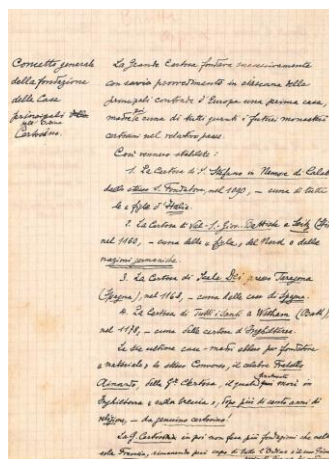 Concetto generale
della fondazione
delle Case
principali
nell'Ordine
Certosino.
La Grande Certosa fondava successivamente
con savio provvedimento in ciascuna delle
principali contrade d'Europa una prima casa,
madre come di tutti quanti i futuri monasteri
certosini nel relativo paese.
Così vennero stabilite:
1. La Certosa di S. Stefano in Nemore di
dallo stesso S. Fondatore, nel 1090, – come di tutte
le figlie d'Italia.
2. La Certosa di Val-S. Giov. Battista a
nel 1160, – come delle figlie, del Nord, e delle
nazioni germaniche.
3. La Certosa di Scala Dei presso Taragona
(Spagna), nel 1163, – come delle case di Spagna.
4. La Certosa di Tutti i Santi a Witham
nel 1178, – come delle certose d'Inghilterra.
Le tre ultime case-madri ebbero per fondatore
materiale, lo stesso Converso, il celebre Fratello
Ainardo, della Gª Certosa, il quale morì in
Inghilterra e nella Grecia, dopo più di cento anni di
religione, – da genuino certosino!
La G. Certosa in poi non fece più fondazioni che nella
sola Francia, rimanendo però capo di tutto l'Ordine